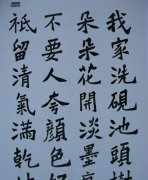 我家洗硯池頭樹
朵朵花開淡墨
不要人夸顏色好
祇留清氣滿乾